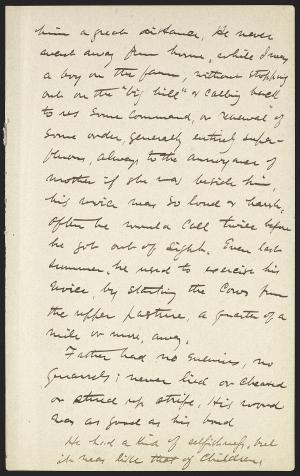 him a great distance, He never
went away from home, while I was
a boy on the farm, without stopping
out on the "big hill" & calling back
to us some command, or "renewal" of
some order, generally entirely super-
fluous, always to the annoyance of
mother if she was beside him,
his voice was so loud & harsh,
often he would call twice before
he got out of sight. Even last
summer, he used to exercise his
voice, by starting the cows from
the upper pasture, a quarter of a
mile or more, away.
Father had no enemies, no
quarrels; never lied or cheated
or stirred up strife, His word
was as good as his bond
He had a kind of selfishness, but
it was like that of children,